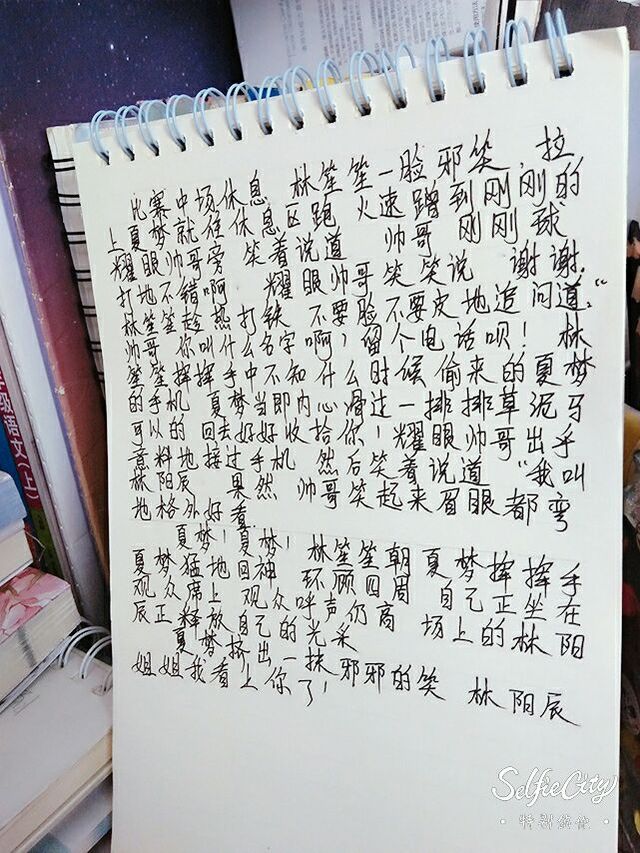 比赛中场休息 林笙笙一脸邪笑,拉
上夏梦就往休息区跑 火速蹭到刚刚的
耀眼帅哥旁 笑着说道 帅哥 刚刚球
打地不错啊 耀眼帅哥笑笑说 谢谢.
林笙笙趁热打铁 不要脸不要皮地追问道,“
帅哥 你叫什么名字啊,留个电话呗! 林
笙笙挥挥手中不知什么时候偷来的夏梦
的手机 夏梦当即内心滑过一排排草泥马
可以的 回去好好收拾你!耀眼帅哥出乎
意料地接过手机 然后笑着说道 “我叫
林阳辰 果然 帅哥笑起来眉眼都弯
地格外好看.
夏梦!夏梦! 林笙笙朝夏梦挥挥手
夏梦猛地回神 环顾四周 自己正坐在
观众席上 观众呼声仍高 场上的林阳
辰正释放自己的光采
夏梦挤出一抹邪邪的笑 林阳辰
姐姐我看上你了!
级语文(上)
SelfieCity
·特别鲜化·